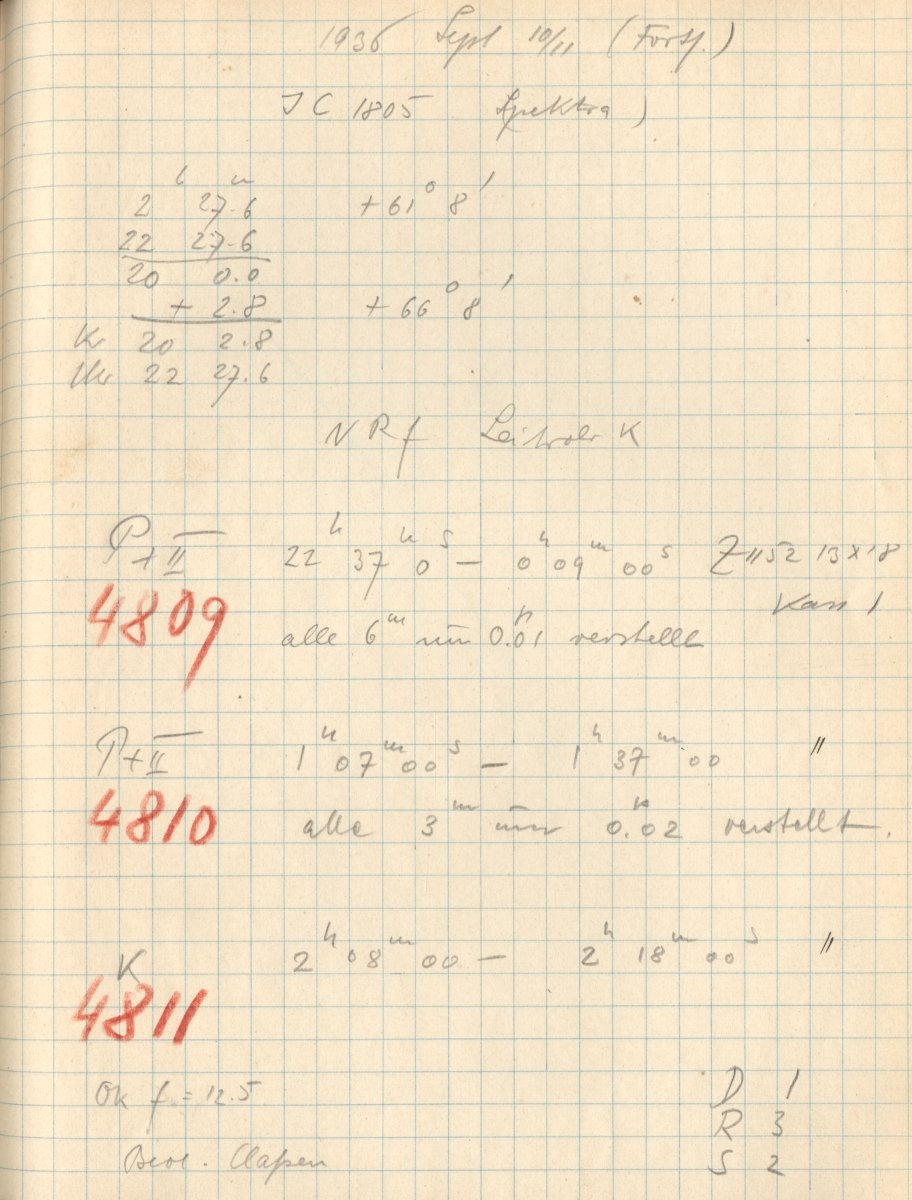 1936 Sept 10/11 (Forts.)
JC 1805 Spektra )
2ʰ 27ᵐ.6 +61° 8'
22 27.6
20 0.0
+ 2.8 +66° 8'
Kr 20 2.8
Uhr 22 27.6
N R f Leitrohr K
P+II 22ʰ 37ᵐ 0ˢ — 0ʰ 09ᵐ 00ˢ Z 1152 13×18
4809 Kass 1
alle 6ᵐ um 0.01 verstellt
P+II 1ʰ 07ᵐ 00ˢ — 1ʰ 37ᵐ 00 〃
4810
alle 3ᵐ um 0.02 verstellt.
K 2ʰ 08ᵐ 00 — 2ʰ 18ᵐ 00ˢ 〃
4811
Ok f = 12.5 D 1
R 3
Beob. Claßen S 2